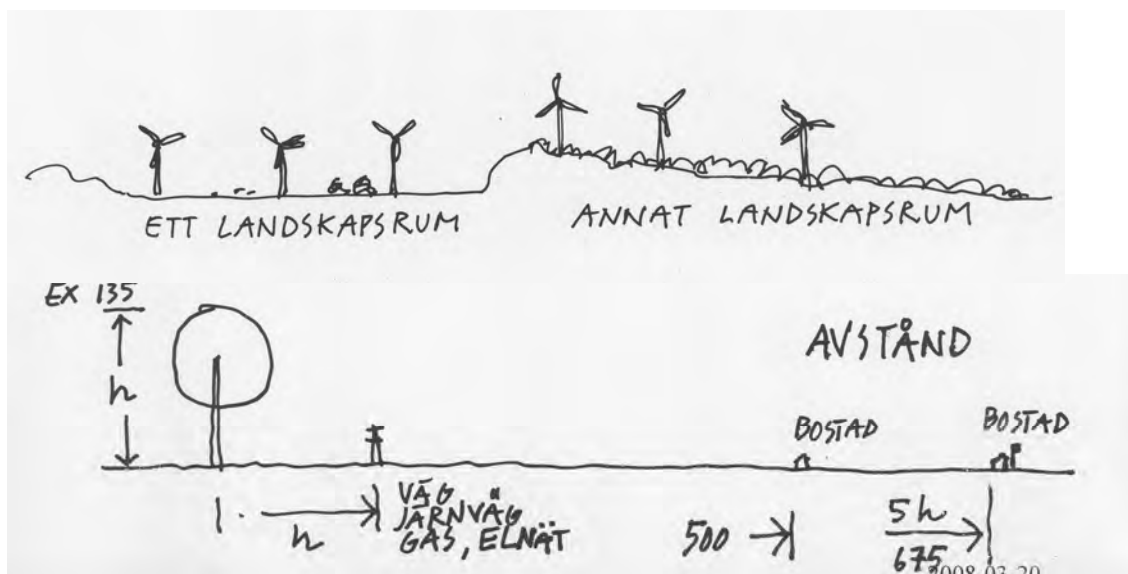 ETT LANDSKAPSRUM
ANNAT LANDSKAPSRUM
EX 135
h
AVSTÅND
BOSTAD
BOSTAD
h
VÄG
JÄRNVÄG
GAS, ELNÄT
500
5h
675
2008-03-20